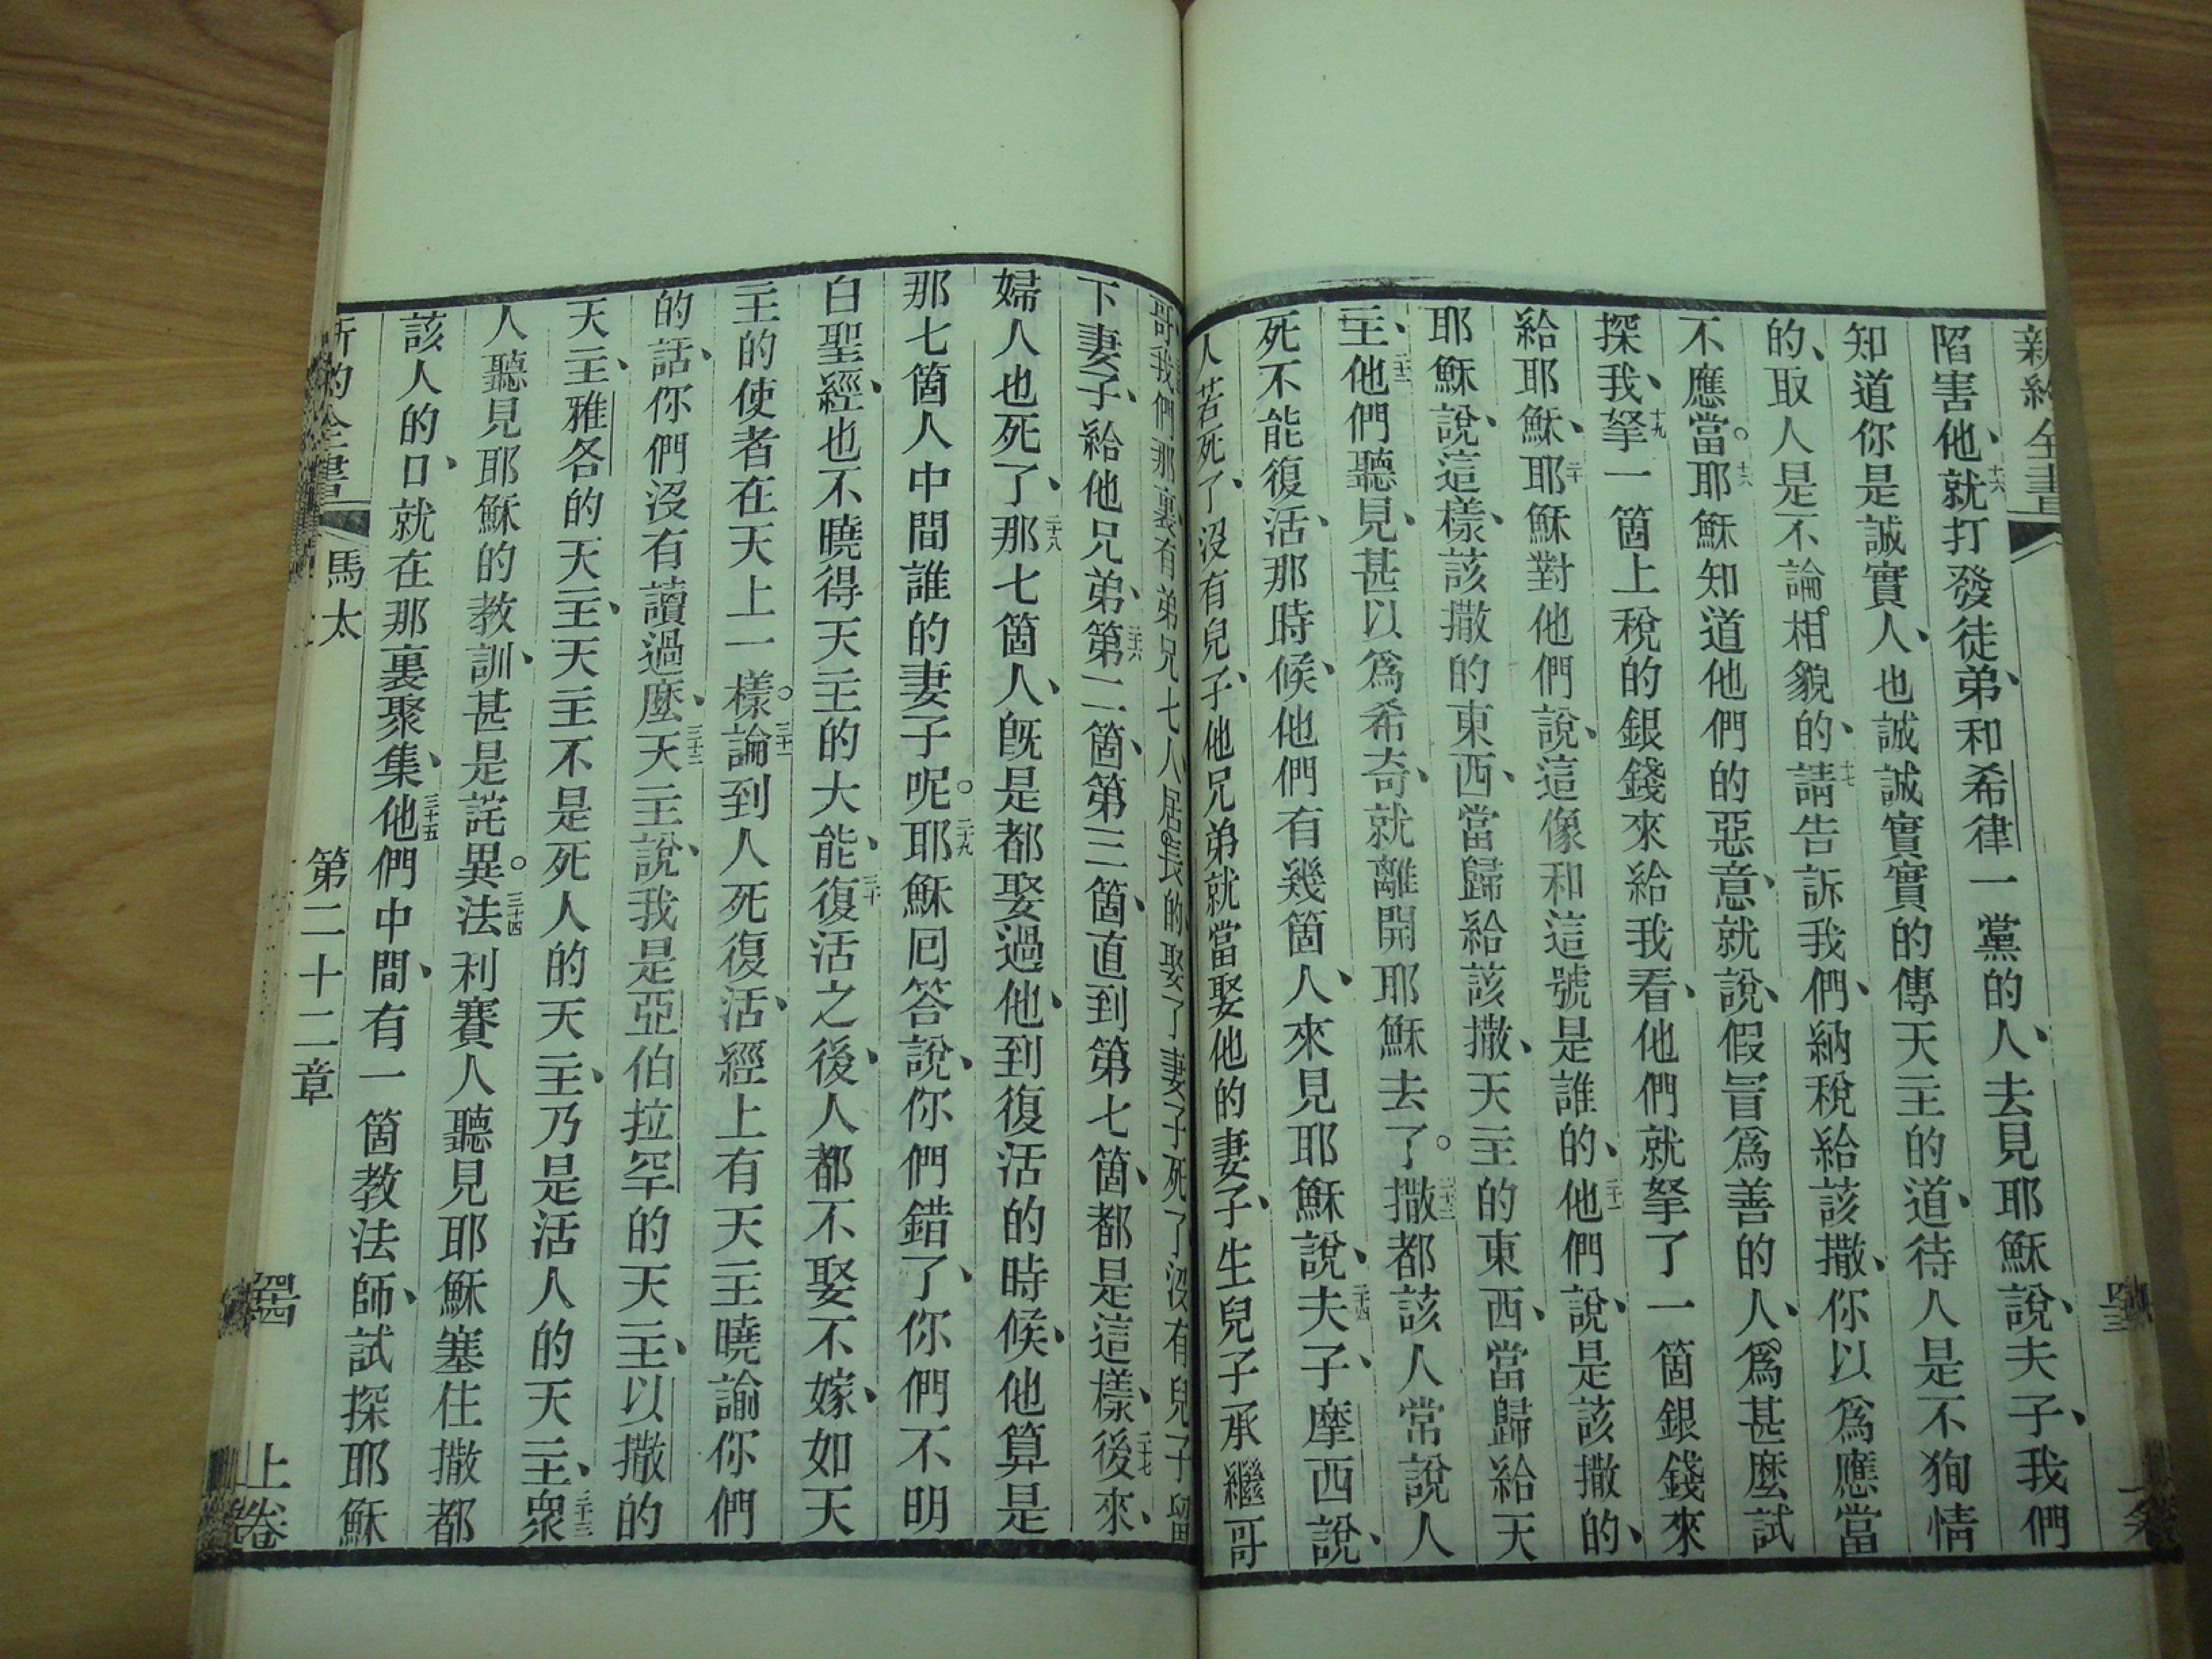 新約全書
陷害他、十六就打發徒弟、和希律一黨的人、去見耶穌說、夫子、我們
知道你是誠實人、也誠誠實實的傳天主的道、待人是不狥情
的、取人是不論相貌的、十七請告訴我們、納稅給該撒、你以爲應當
不應當。十八耶穌知道他們的惡意、就說、假冒爲善的人、爲甚麼試
探我、十九拏一箇上稅的銀錢來給我看、他們就拏了一箇銀錢來
給耶穌、二十耶穌對他們說、這像和這號是誰的、二十一他們說、是該撒的、
耶穌說、這樣、該撒的東西、當歸給該撒、天主的東西、當歸給天
主、二十二他們聽見、甚以爲希奇、就離開耶穌去了。二十三撒都該人常說人
死不能復活、那時候、他們有幾箇人、來見耶穌說、二十四夫子、摩西說、
人若死了、沒有兒子、他兄弟就當娶他的妻子、生兒子承繼哥
哥、我們那裏、有弟兄七人居長的娶了妻子死了沒有兒子留
下妻子、給他兄弟、二十六第二箇、第三箇、直到第七箇、都是這樣、二十七後來、
婦人也死了、二十八那七箇人、旣是都娶過他、到復活的時候、他算是
那七箇人中間誰的妻子呢。二十九耶穌囘答說、你們錯了、你們不明
白聖經、也不曉得天主的大能、三十復活之後、人都不娶不嫁、如天
主的使者在天上一樣。三十一論到人死復活、經上有天主曉諭你們
的話、你們沒有讀過麼、三十二天主說、我是亞伯拉罕的天主、以撒的
天主、雅各的天主、天主不是死人的天主、乃是活人的天主、三十三衆
人聽見耶穌的教訓、甚是詫異。三十四法利賽人聽見耶穌塞住撒都
該人的口、就在那裏聚集、三十五他們中間、有一箇教法師、試探耶穌
新約全書 馬太 第二十二章 上卷